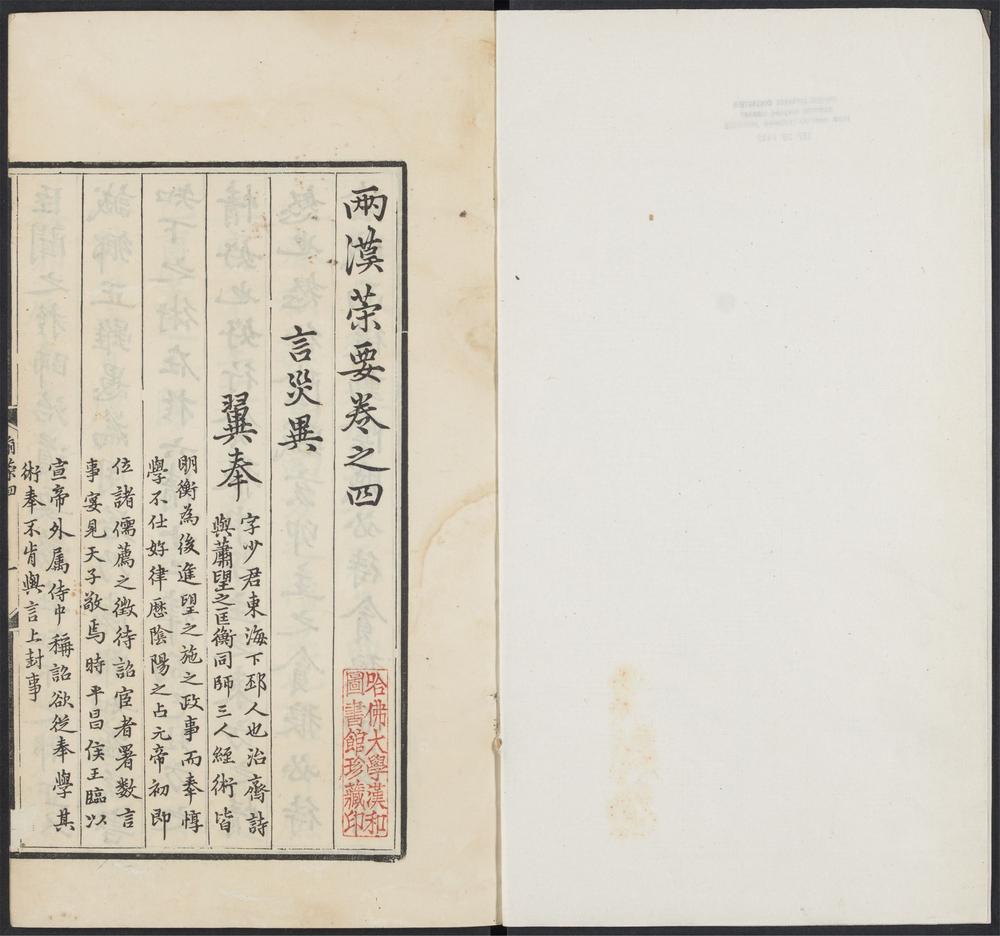 兩漢䇿要卷之四
言災異
翼奉
字少君東海下邳人也治齊詩
與蕭望之匡衡同師三人經術皆
明衡為後進望之施之政事而奉惇
學不仕好律歷陰陽之占元帝初即
位諸儒薦之徵待詔宦者署數言
事宴見天子敬焉時平昌侯王臨以
宣帝外属侍中稱詔欲從奉學其
術奉不肯與言上封事
哈佛大學漢和
圖書館珍藏印